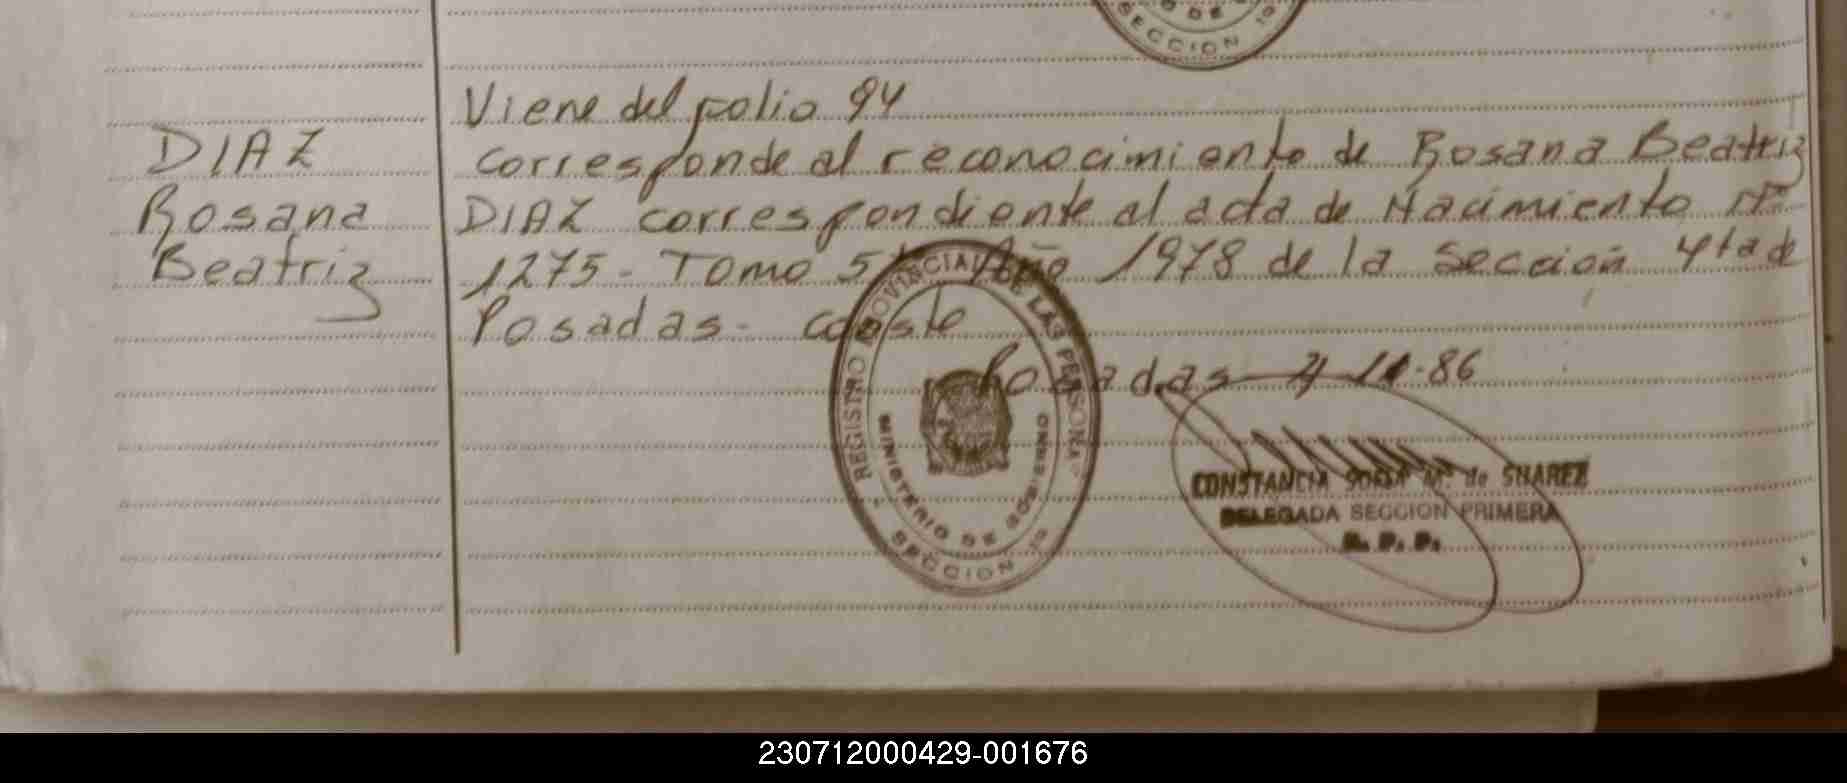 DE
SECCION 1º
Viene del folio 94
DIAZ
Rosana
Beatriz
corresponde al reconocimiento de Rosana Beatriz
DIAZ correspondiente al acta de Nacimiento Nº
1275- Tomo 5º Año 1978 de la Sección 4ta de
Posadas- conste
Posadas 86
REGISTRO PROVINCIAL DE LAS PERSONAS
MINISTERIO DE GOBIERNO
SECCION 1º
CONSTANCIA Mº de SUAREZ
DELEGADA SECCION PRIMERA
R. P. P.
230712000429-001676